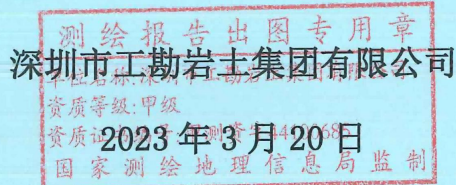 测绘报告出图专用章
深圳市工勘岩土集团有限公司
单位名称:深圳市工勘岩土集团有限公司
资质等级:甲级
2023年3月20日
国家测绘地理信息局监制